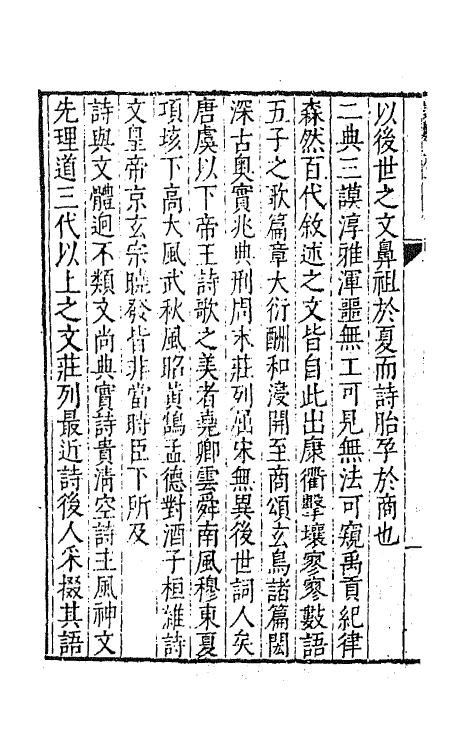 以後世之文鼻祖於夏而詩胎孕於商也
二典三謨淳雅渾噩無工可見無法可窺禹貢紀律
森然百代敘述之文皆自此出康衢擊壤寥寥數語
五子之歌篇章大衍酬和漫開至商頌玄鳥諸篇閎
深古奧實兆典刑周末莊列屈宋無異後世詞人矣
唐虞以下帝王詩歌之美者堯卿雲舜南風穆東夏
項垓下高大風武秋風昭黃鵠孟德對酒子桓雜詩
文皇帝京玄宗曉發皆非當時臣下所及
詩與文體迥不類文尚典實詩貴清空詩主風神文
先理道三代以上之文莊列最近詩後人采掇其語